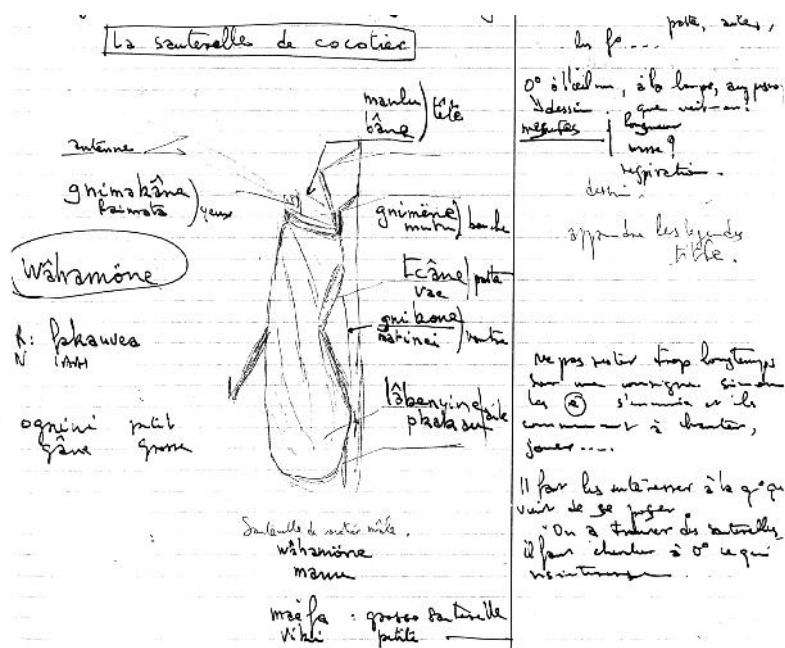 La sauterelle de cocotier
manlu
bâne
tête
antenne
gnimakâne
haimata
yeux
gnimëne
mutru
bouche
wâhamöne
tcâne
vae
patte
gnibone
matinei
ventre
R: fakauvea
N IAAH
ognini petit
gâne grosse
lâbenyine
pkakau
aile
Sauterelle de cocotier mâle.
wâhamöne
manu
maëfa : grosse sauterelle
vikei petite
patte, autes,
les
0° à l'œil nu, à la loupe,
dessin que voit-on?
mesures
longueur
masse?
respiration
dessin.
apprendre les légendes
titre.
ne pas rester trop longtemps
sur une consigne sinon
les e s'ennuie et ils
commencent à chanter,
jouer....
Il faut les intéresser à la q° qu
vient de se poser.
On a trouver des sauterelles,
il faut chercher à 0° ce qui